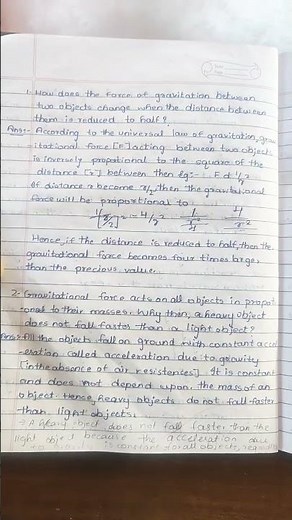 1. How does the force of gravitation between
two objects change when the distance between
them is reduced to half?
Ans:- According to the universal law of gravitation, grav
itational force [F] acting between two objects
is inversely proportional to the square of the
distance [r] between then Eg:- : F α 1/r²
If distance r become r/2, then the gravitational
force will be proportional to
Hence, if the distance is reduced to half, then the
gravitational force becomes four times large,
than the precious value.
2. Gravitational force acts on all objects in propot
ional to their masses. Why then, a heavy object
does not fall faster than a light object?
Ans:- All the object fall on ground with constant accel
eration called acceleration due to gravity
[in the absence of air resistences]. It is constant
and does not depend upon the mass of an
object. Hence, heavy objects do not fall faster
than light objects.
→ A heavy object does not fall faster than the
light object because the acceleration due
is constant for all objects,